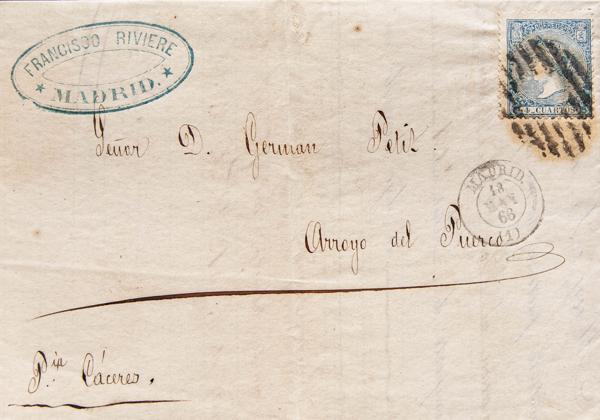 FRANCISCO RIVIERE
MADRID.
4 CUARTOS
Señor D. German Petit.
MADRID
13
MAY
66
(1)
Arroyo del Puerco
Pia Cáceres.